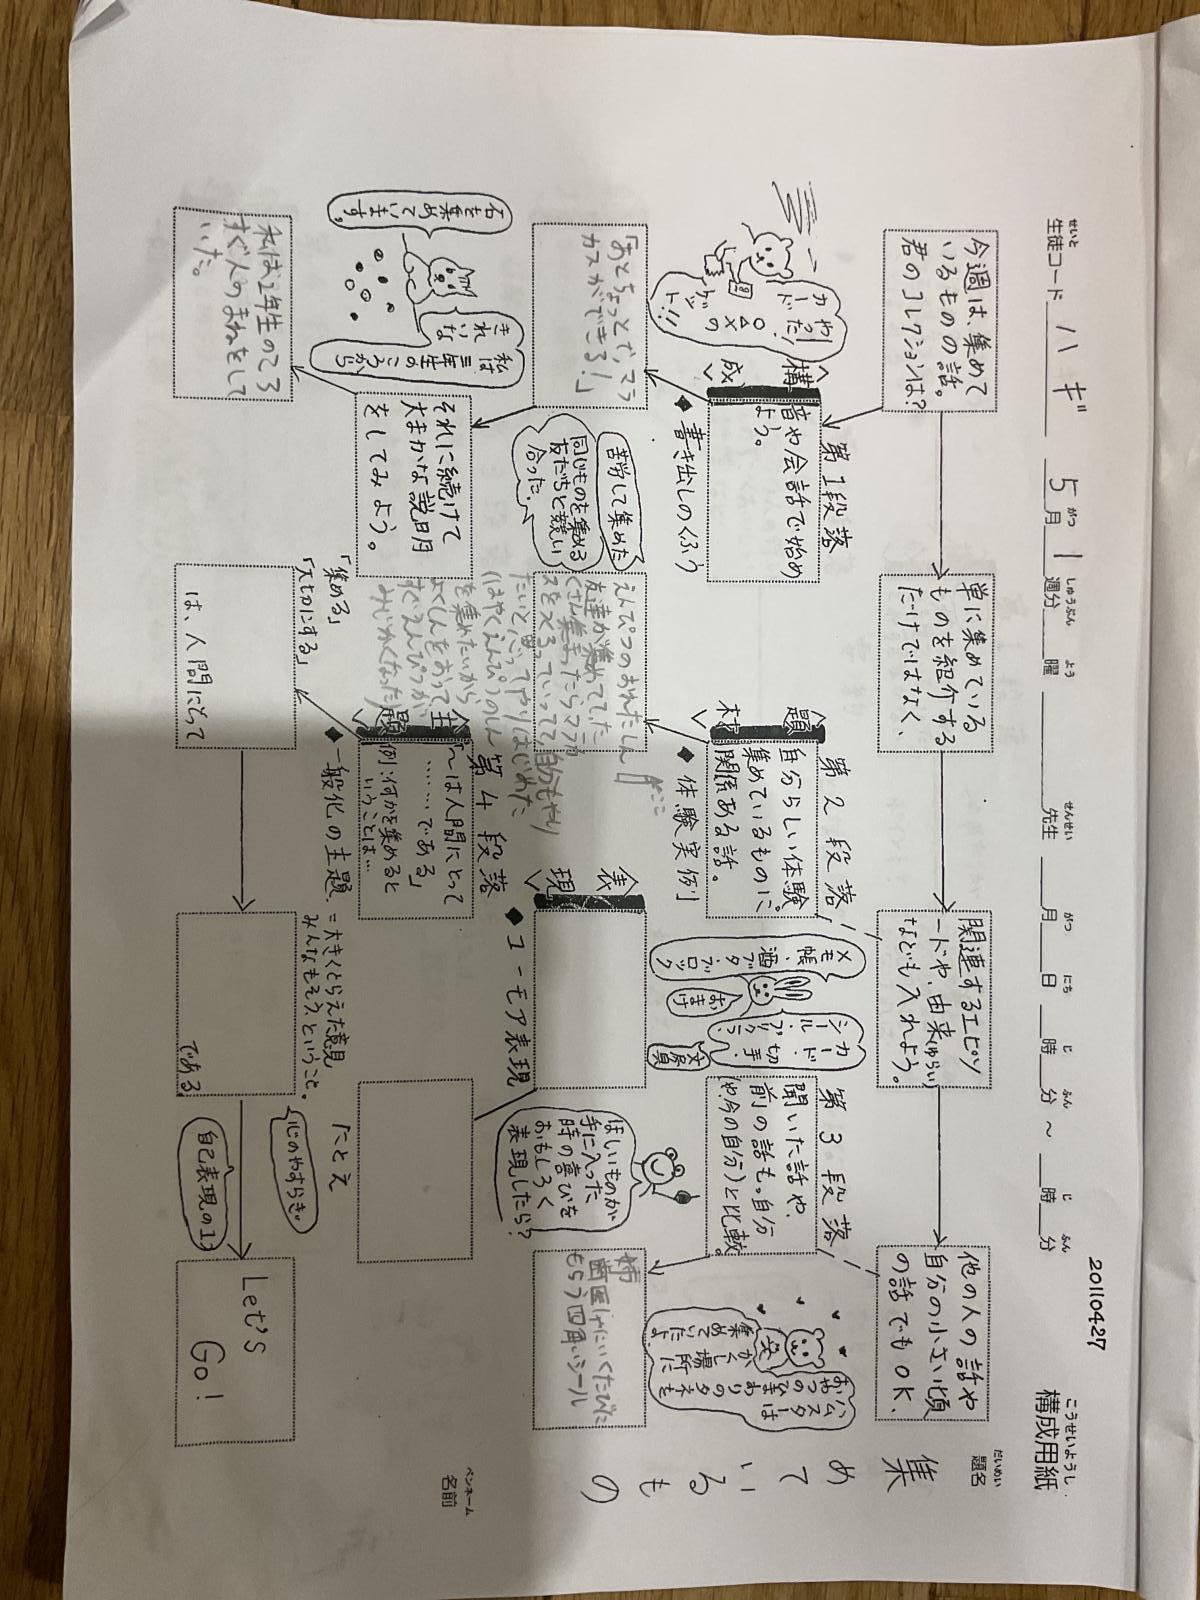 20110427
こうせいようし
構成用紙
せいと
生徒コード ハギ 5月1週分 曜 先生 月 日 時 分 〜 時 分
がつ しゅうぶん よう せんせい がつ にち じ ふん じ ふん
だいめい
題名
集めているもの
ペンネーム
名前
今週は、集めて
いるものの話。
君のコレクションは?
単に集めている
ものを紹介する
だけではなく、
関連するエピソ
ードや、由来(ゆらい)
なども入れよう。
他の人の話や
自分の小さい頃
の話でもOK.
第1段落
<構成>
音や会話で始め
よう。
◆書き出しのくふう
やった!
カード
○△×の
ゲット!!
「あとちょっとで、マラ
カスができる!」
それに続けて
大まかな説明
をしてみよう。
私は三年生のころから
きれいな
石を集めています。
私は2年生のころ
すぐ人のまねをして
いた。
第2段落
<題材>
自分らしい体験。
集めているものに
関係ある話。
◆体験実例
苦労して集めた
同じものを集める
友だちと競い
合った
えんぴつのおれたしん
友達が集めてた
くさん集まったらマラカ
スをつくるっていってて、自分もやり
たいと思ってやりはじめた
を集めたいから
すぐえんぴつが
みじかくなった)
第3段落
聞いた話や、
前の話も。自分
(や、今の自分)と比較。
カード・切手・
シール・プリクラ・
文房具
メモ帳・
酒ブタ・ブロック
おまけ
ハムスターは
おやつのひまわりのタネを
かくし場所に
集めていたよ
姉
歯医しゃにいくたびに
もらう四角いシール
<表現>
◆ユーモア表現
ほしいものが
手に入った
時の喜びを
おもしろく
表現したら?
たとえ
第4段落
<主題>
「〜は人間にとって
……である」
例:何かを集めると
いうことは…
◆一般化の主題
=大きくとらえた意見
みんなもそう、ということ。
「集める」
「大切にする」
は、人間にとって
である。
心のやすらぎ。
自己表現の1つ
Let's
Go!